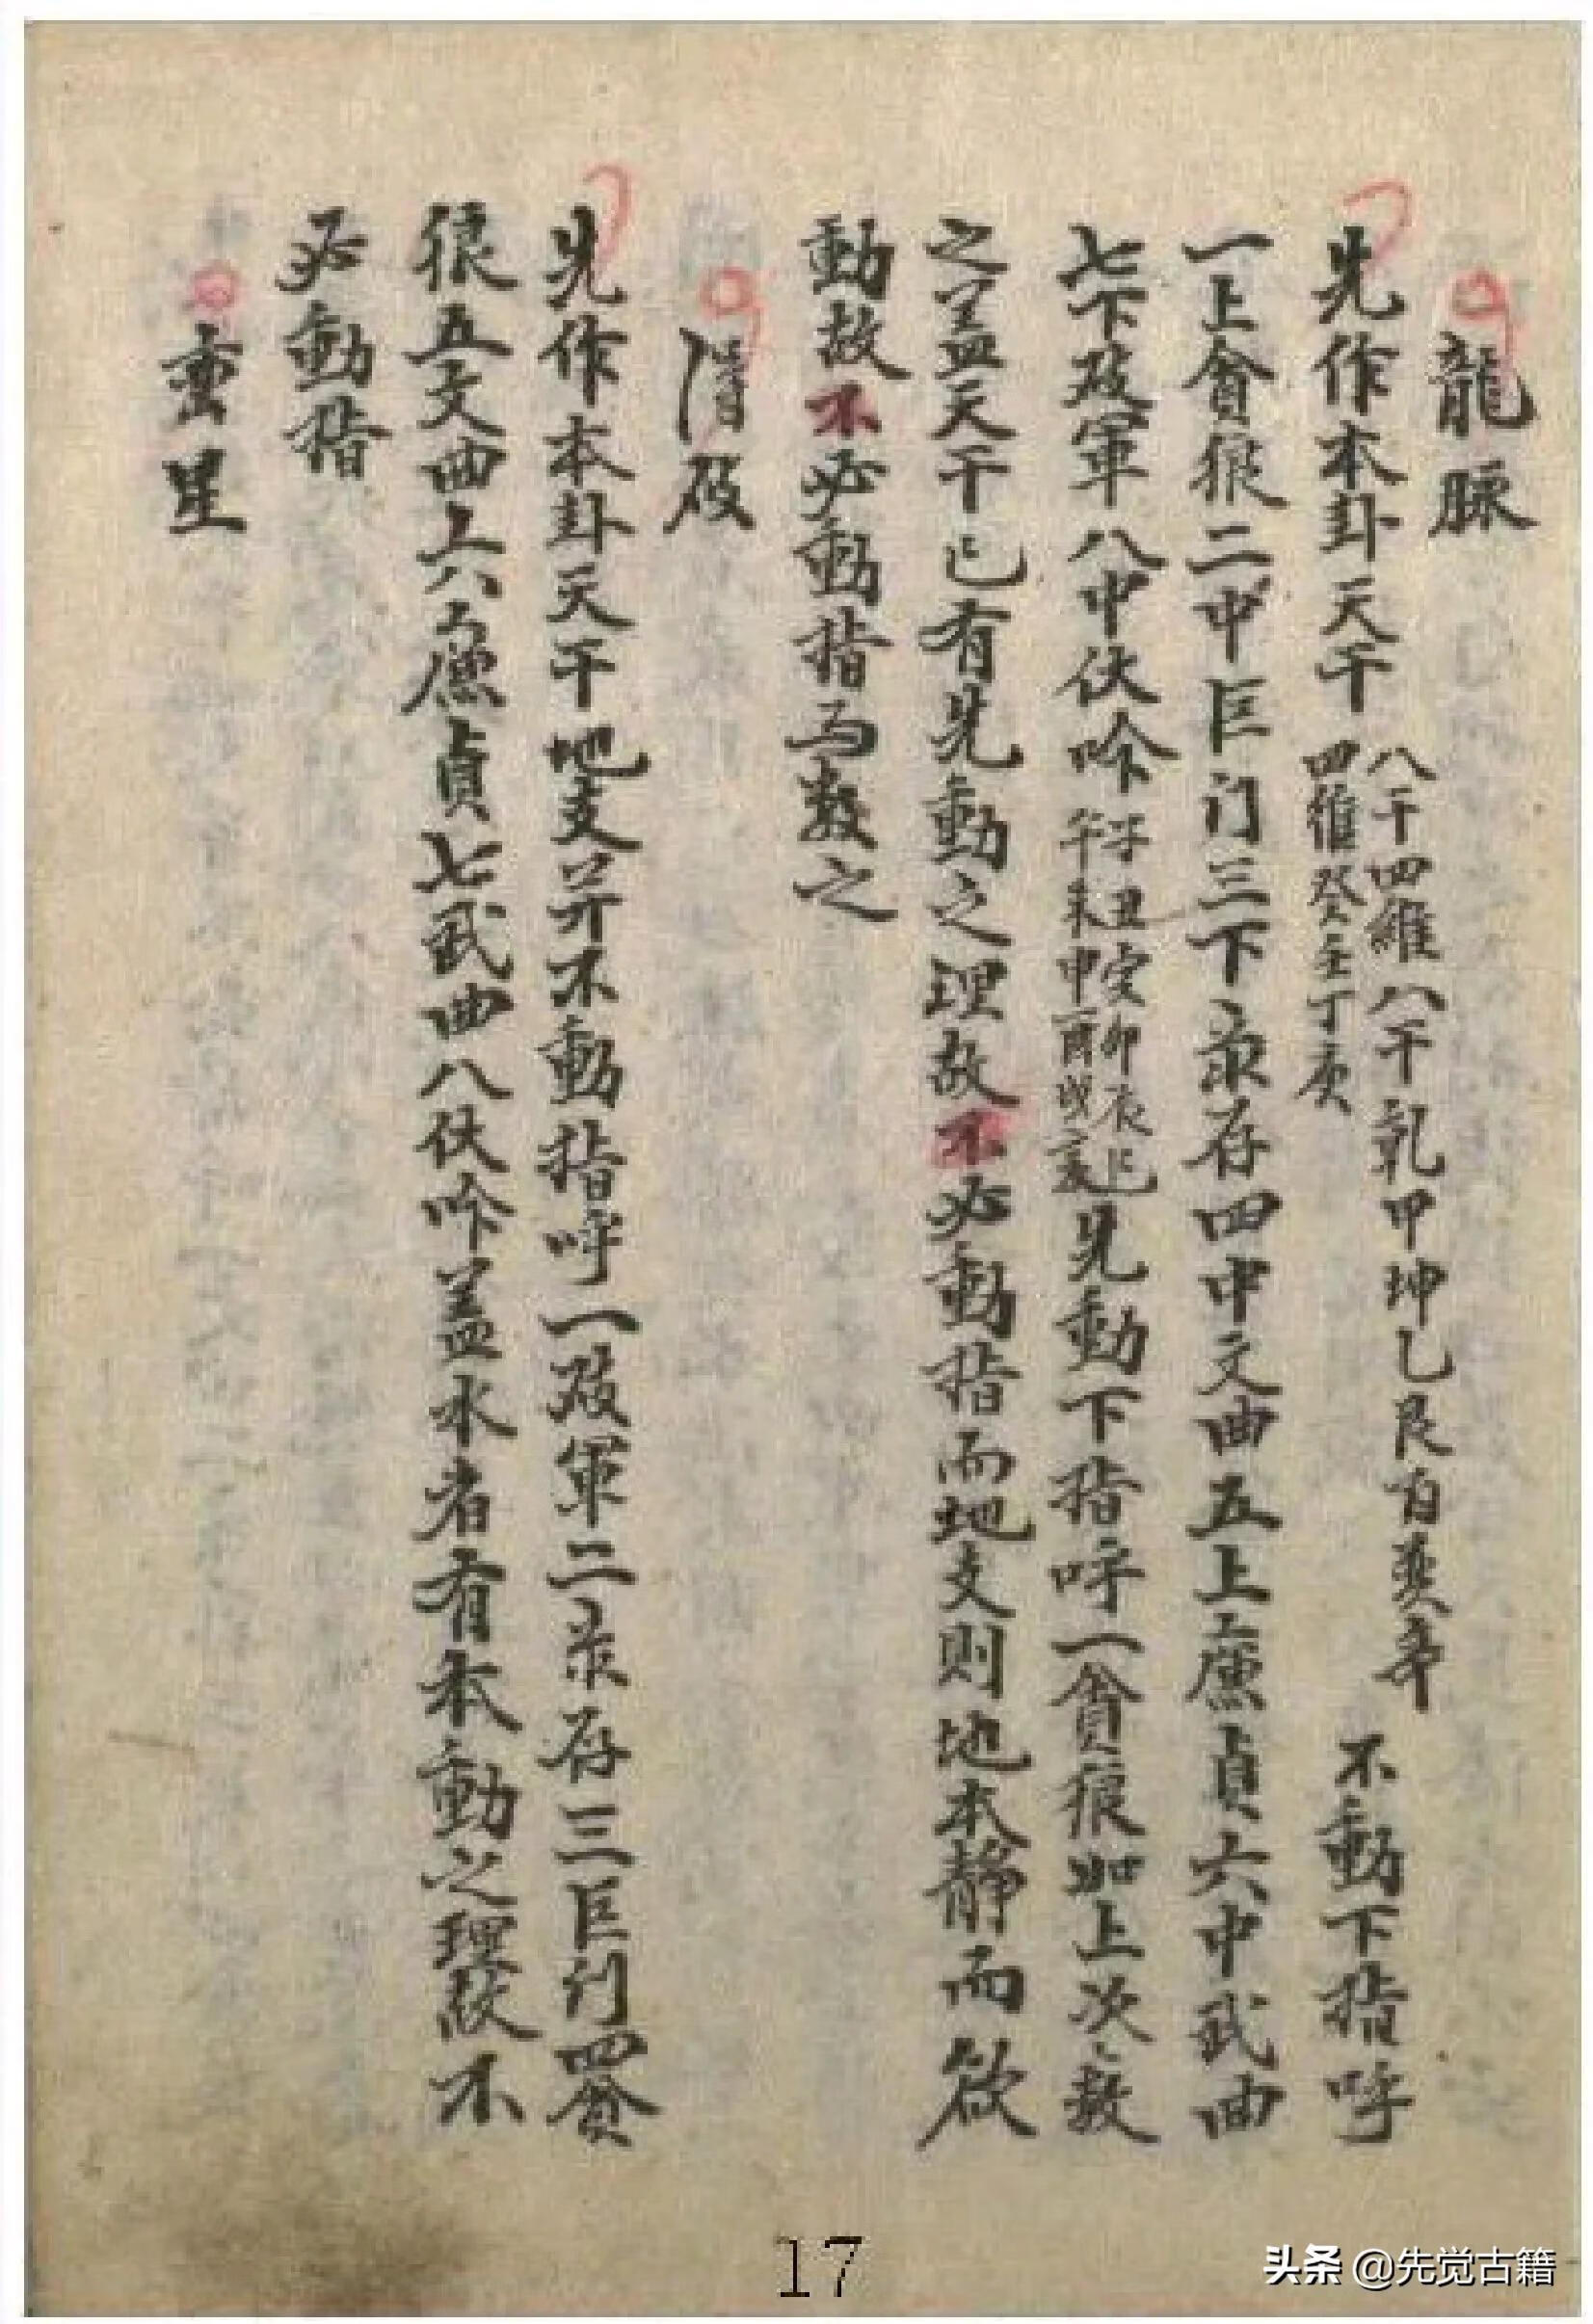 龍脈
先作本卦天干
八干四維八干乾甲坤乙艮
四維癸壬丁庚
不動下指呼
一上貪狼二中巨门三下彔存四中文曲五上廉貞六中武曲
七下破軍八中伏吟
子丑寅卯辰巳
午未申酉戌亥
先動下指呼一貪狼如上次〻数
之盖天干已有先動之理故不必動指而地支則地本静而欲
動故不必動指而数之
清殺
先作本卦天干地支并不動指呼一破軍二彔存三巨门四貪
狼五文曲上六廉貞七武曲八伏吟盖水者有本動之理故不
必動指
星
17
头条 @先觉古籍